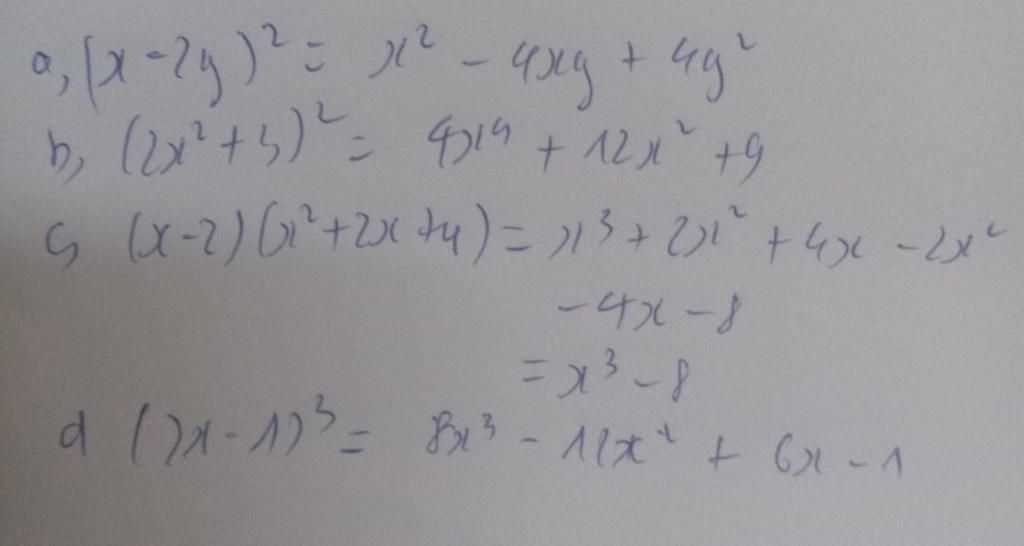 a, (x - 2y)² = x² - 4xy + 4y²
b, (2x² + 3)² = 4x⁴ + 12x² + 9
c, (x - 2)(x² + 2x + 4) = x³ + 2x² + 4x - 2x²
- 4x - 8
= x³ - 8
d (2x - 1)³ = 8x³ - 12x² + 6x - 1